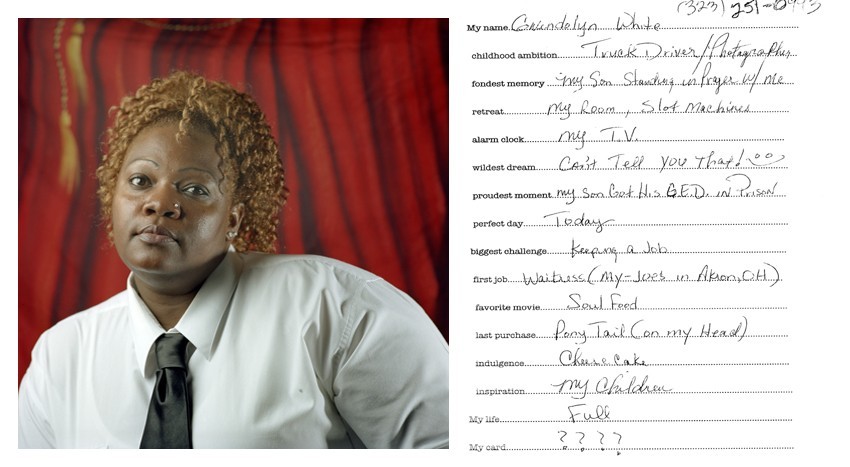 (323) 251-0993
My name Gwendolyn White
childhood ambition Truck Driver/Photographer
fondest memory my Son Standing in Prayer w/ Me
retreat My Room, Slot Machines
alarm clock My T.V.
wildest dream Can't Tell You That!
proudest moment my Son Got His G.E.D. in Prison
perfect day Today
biggest challenge Keeping a Job
first job Waitress (My-Joes in Akron, OH)
favorite movie Soul Food
last purchase Pony Tail (on my Head)
indulgence Cheese Cake
inspiration My Children
My life Full
My card ? ? ? ?